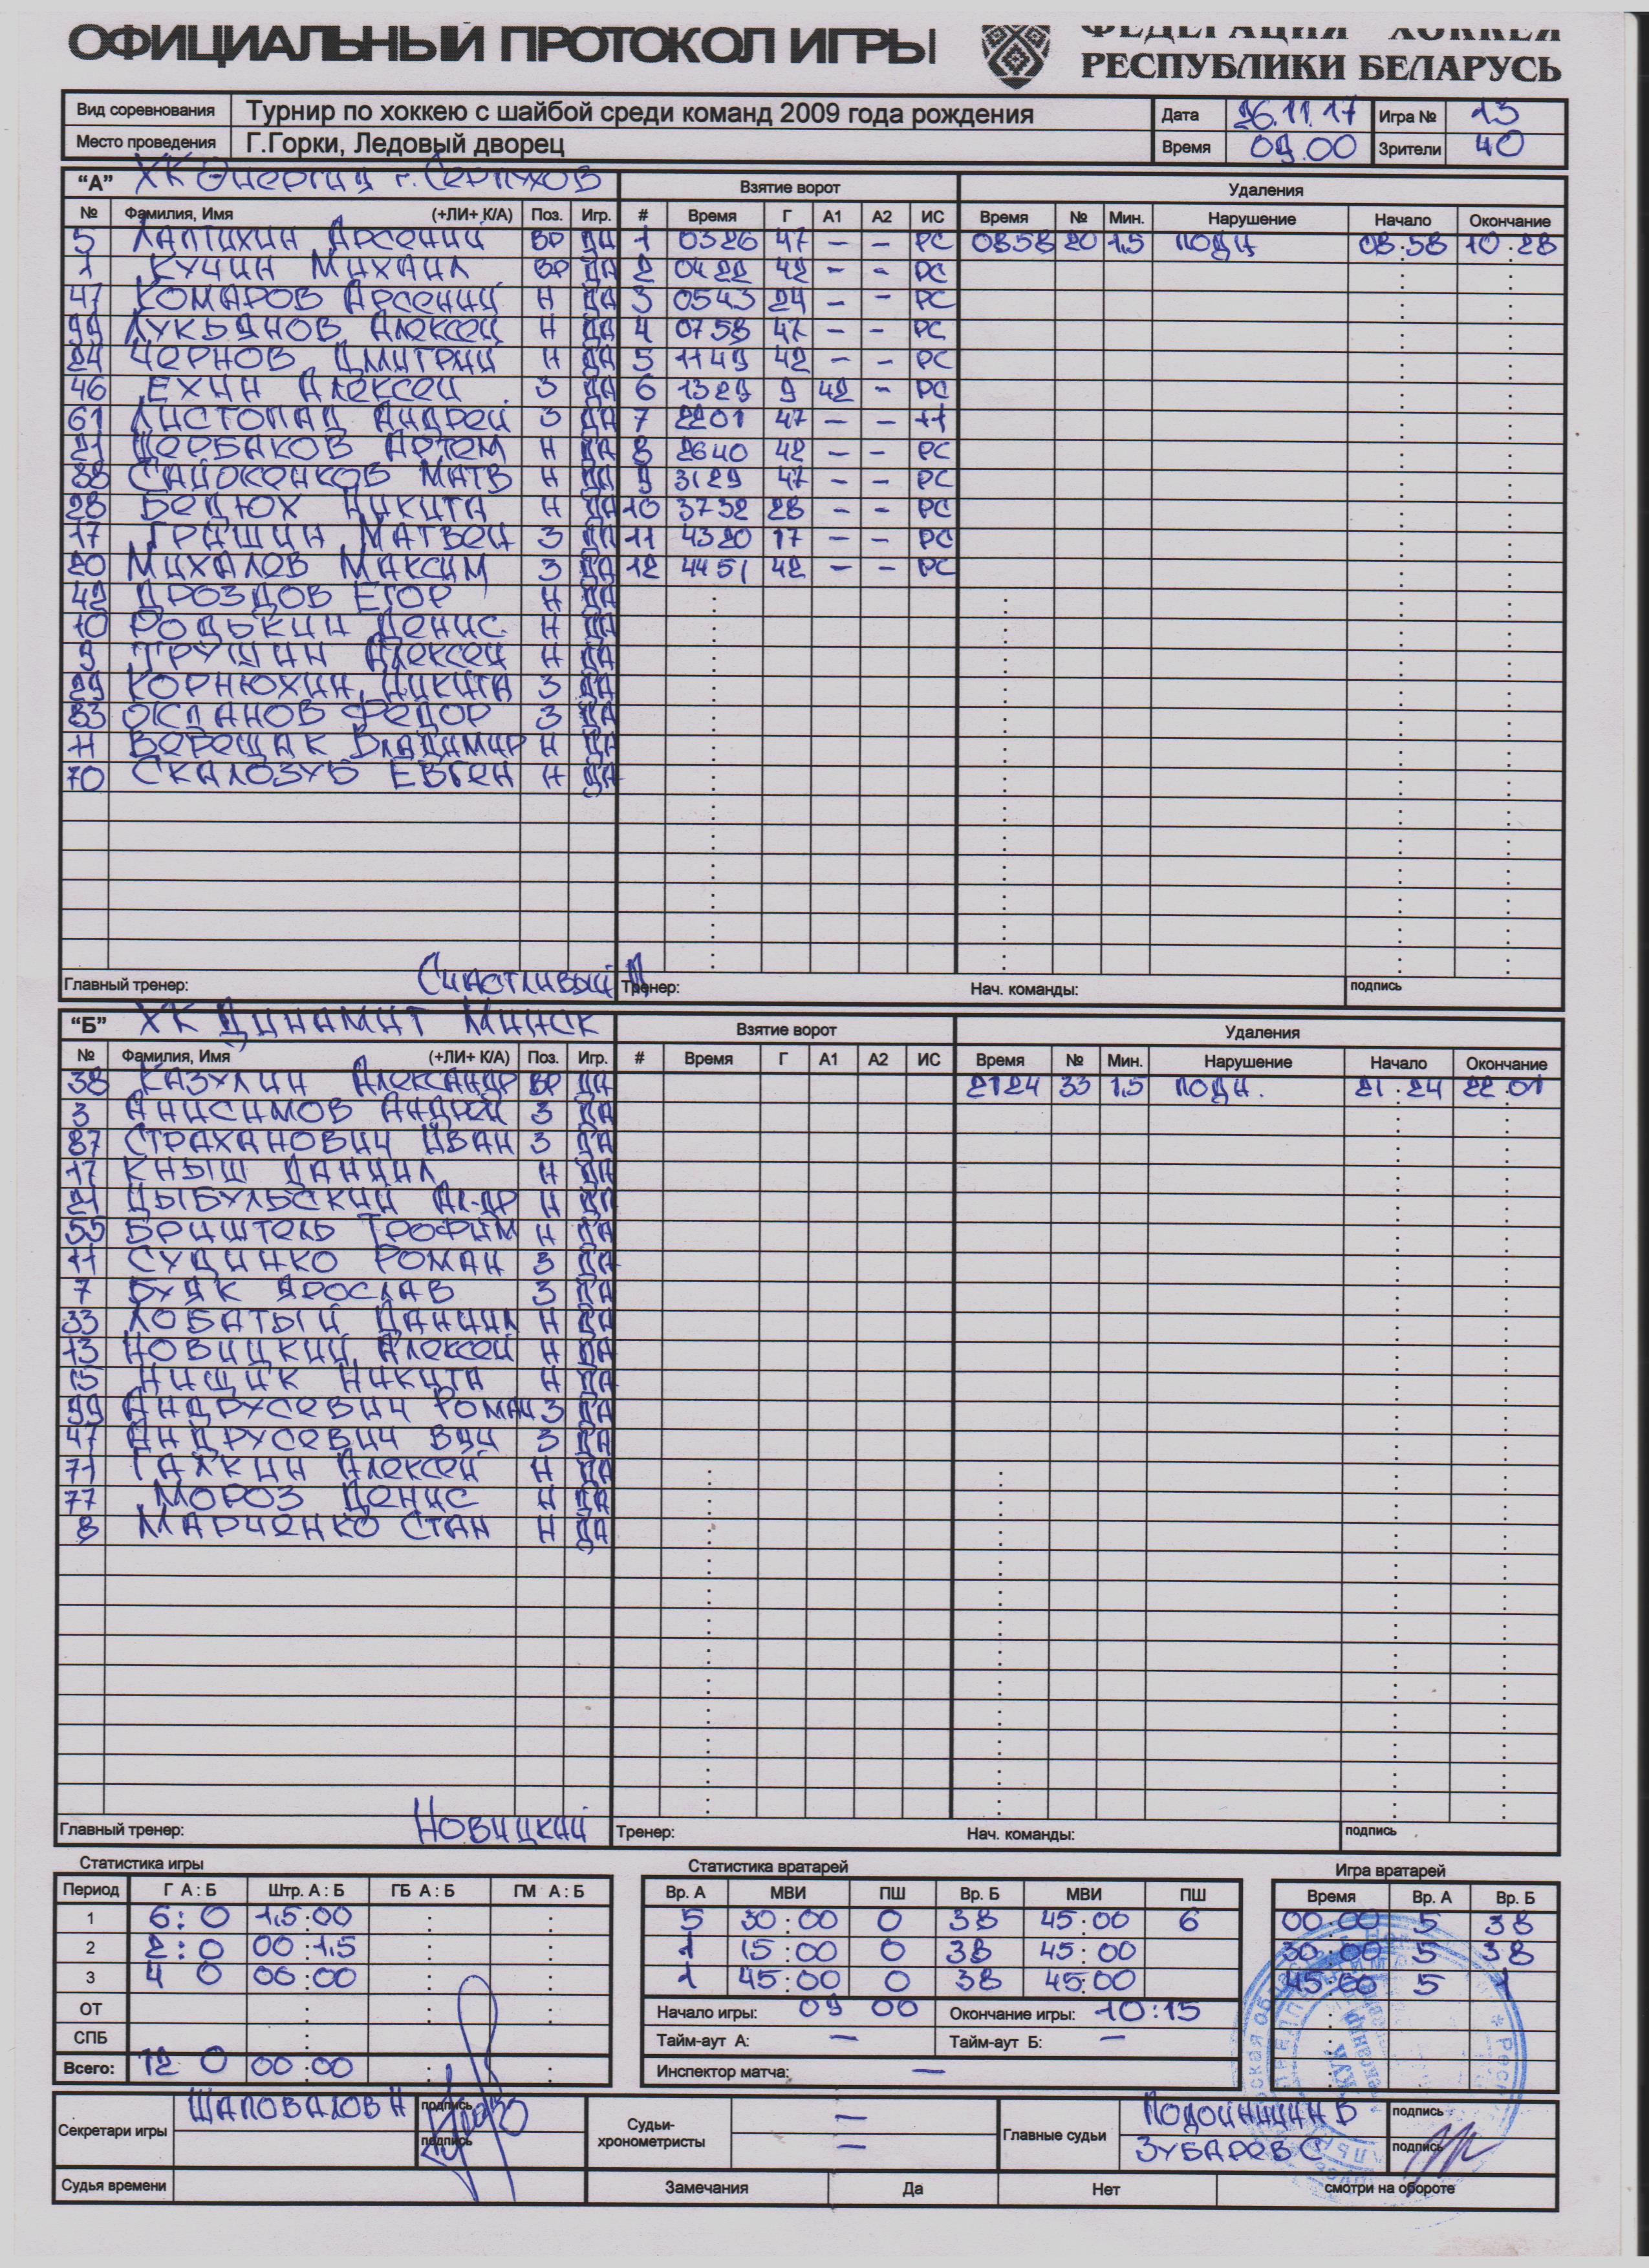 ОФИЦИАЛЬНЫЙ ПРОТОКОЛ ИГРЫ
ФЕДЕРАЦИЯ ХОККЕЯ
РЕСПУБЛИКИ БЕЛАРУСЬ
Вид соревнования Турнир по хоккею с шайбой среди команд 2009 года рождения Дата 26.11.17 Игра № 13
Место проведения Г.Горки, Ледовый дворец Время 09.00 Зрители 40
"А" ХК Энергия г. Серпухов Взятие ворот Удаления
№ Фамилия, Имя (+ЛИ+ К/А) Поз. Игр. # Время Г А1 А2 ИС Время № Мин. Нарушение Начало Окончание
5 Лаптихин Арсений ВР ДА 1 0326 47 – – РС 0858 20 1,5 ПОДН 08:58 10:28
1 Кучин Михаил ВР ДА 2 0422 42 – – РС
47 Комаров Арсений Н ДА 3 0543 24 – – РС
99 Лукьянов Алексей Н ДА 4 0758 47 – – РС
24 Чернов Дмитрий Н ДА 5 1149 42 – – РС
46 Ехин Алексей З ДА 6 1329 9 42 – РС
61 Листопад Андрей З ДА 7 2201 47 – – +1
21 Щербаков Артем Н ДА 8 2640 42 – – РС
88 Сайокенков Матв Н ДА 9 3129 47 – – РС
28 Бедюх Никита Н ДА 10 3732 28 – – РС
17 Гришин Матвей З ДА 11 4320 17 – – РС
20 Михалев Максим З ДА 12 4451 42 – – РС
42 Дроздов Егор Н ДА
10 Родькин Денис Н ДА
9 Трушин Алексей Н ДА
29 Корнюхин Никита З ДА
83 Оксанов Федор З ДА
11 Верещак Владимир Н ДА
70 Скалозуб Евген Н ДА
Главный тренер: Счастливый Д Тренер: Нач. команды: подпись
"Б" ХК Динамит Минск Взятие ворот Удаления
№ Фамилия, Имя (+ЛИ+ К/А) Поз. Игр. # Время Г А1 А2 ИС Время № Мин. Нарушение Начало Окончание
38 Казулин Александр ВР ДА 2124 33 1,5 ПОДН. 21:24 22:01
3 Анисимов Андрей З ДА
87 Страханович Иван З ДА
17 Кныш Даниил Н ДА
21 Цыбульский Ал-др Н ДА
55 Бриштель Трофим Н ДА
11 Судинко Роман З ДА
7 Буяк Ярослав З ДА
33 Лобатый Даниил Н ДА
13 Новицкий Алексей Н ДА
15 Нищик Никита Н ДА
99 Андрусевич Роман З ДА
47 Андрусевич Вяч З ДА
71 Галкин Алексей Н ДА
77 Мороз Денис Н ДА
8 Марченко Стан Н ДА
Главный тренер: Новицкий Тренер: Нач. команды: подпись
Статистика игры Статистика вратарей Игра вратарей
Период Г А : Б Штр. А : Б ГБ А : Б ГМ А : Б Вр. А МВИ ПШ Вр. Б МВИ ПШ Время Вр. А Вр. Б
1 6:0 1,5:00 5 30:00 0 38 45:00 6 00:00 5 38
2 2:0 00:1,5 1 15:00 0 38 45:00 30:00 5 38
3 4 0 00:00 1 45:00 0 38 45:00 45:00 5 1
ОТ Начало игры: 09 00 Окончание игры: 10:15
СПБ Тайм-аут А: – Тайм-аут Б: –
Всего: 12 0 00:00 Инспектор матча: –
Секретари игры Шаповалов Н подпись Судьи-хронометристы – Главные судьи Подойницин В подпись
подпись – Зубарев С подпись
Судья времени Замечания Да Нет смотри на обороте